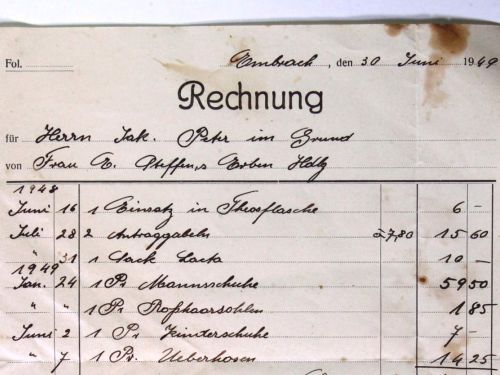 Fol. Embrach, den 30 Juni 1949
Rechnung
für Herrn Jak. Peter im Grund
von Frau E. Steffen,s Erben Hdlg
1948
Juni 16 1 Einsatz in Thosflasche 6 –
Juli 28 2 Antraggabeln à 7,80 15 60
" 31 1 Sack Lacta 10 –
1949
Jan. 24 1 Pr Mannsschuhe 59 50
" " 1 Pr Roßhaarsohlen 1 85
Juni 2 1 Pr. Kinderschuhe 7 –
" 7 1 Pr. Ueberhosen 14 25